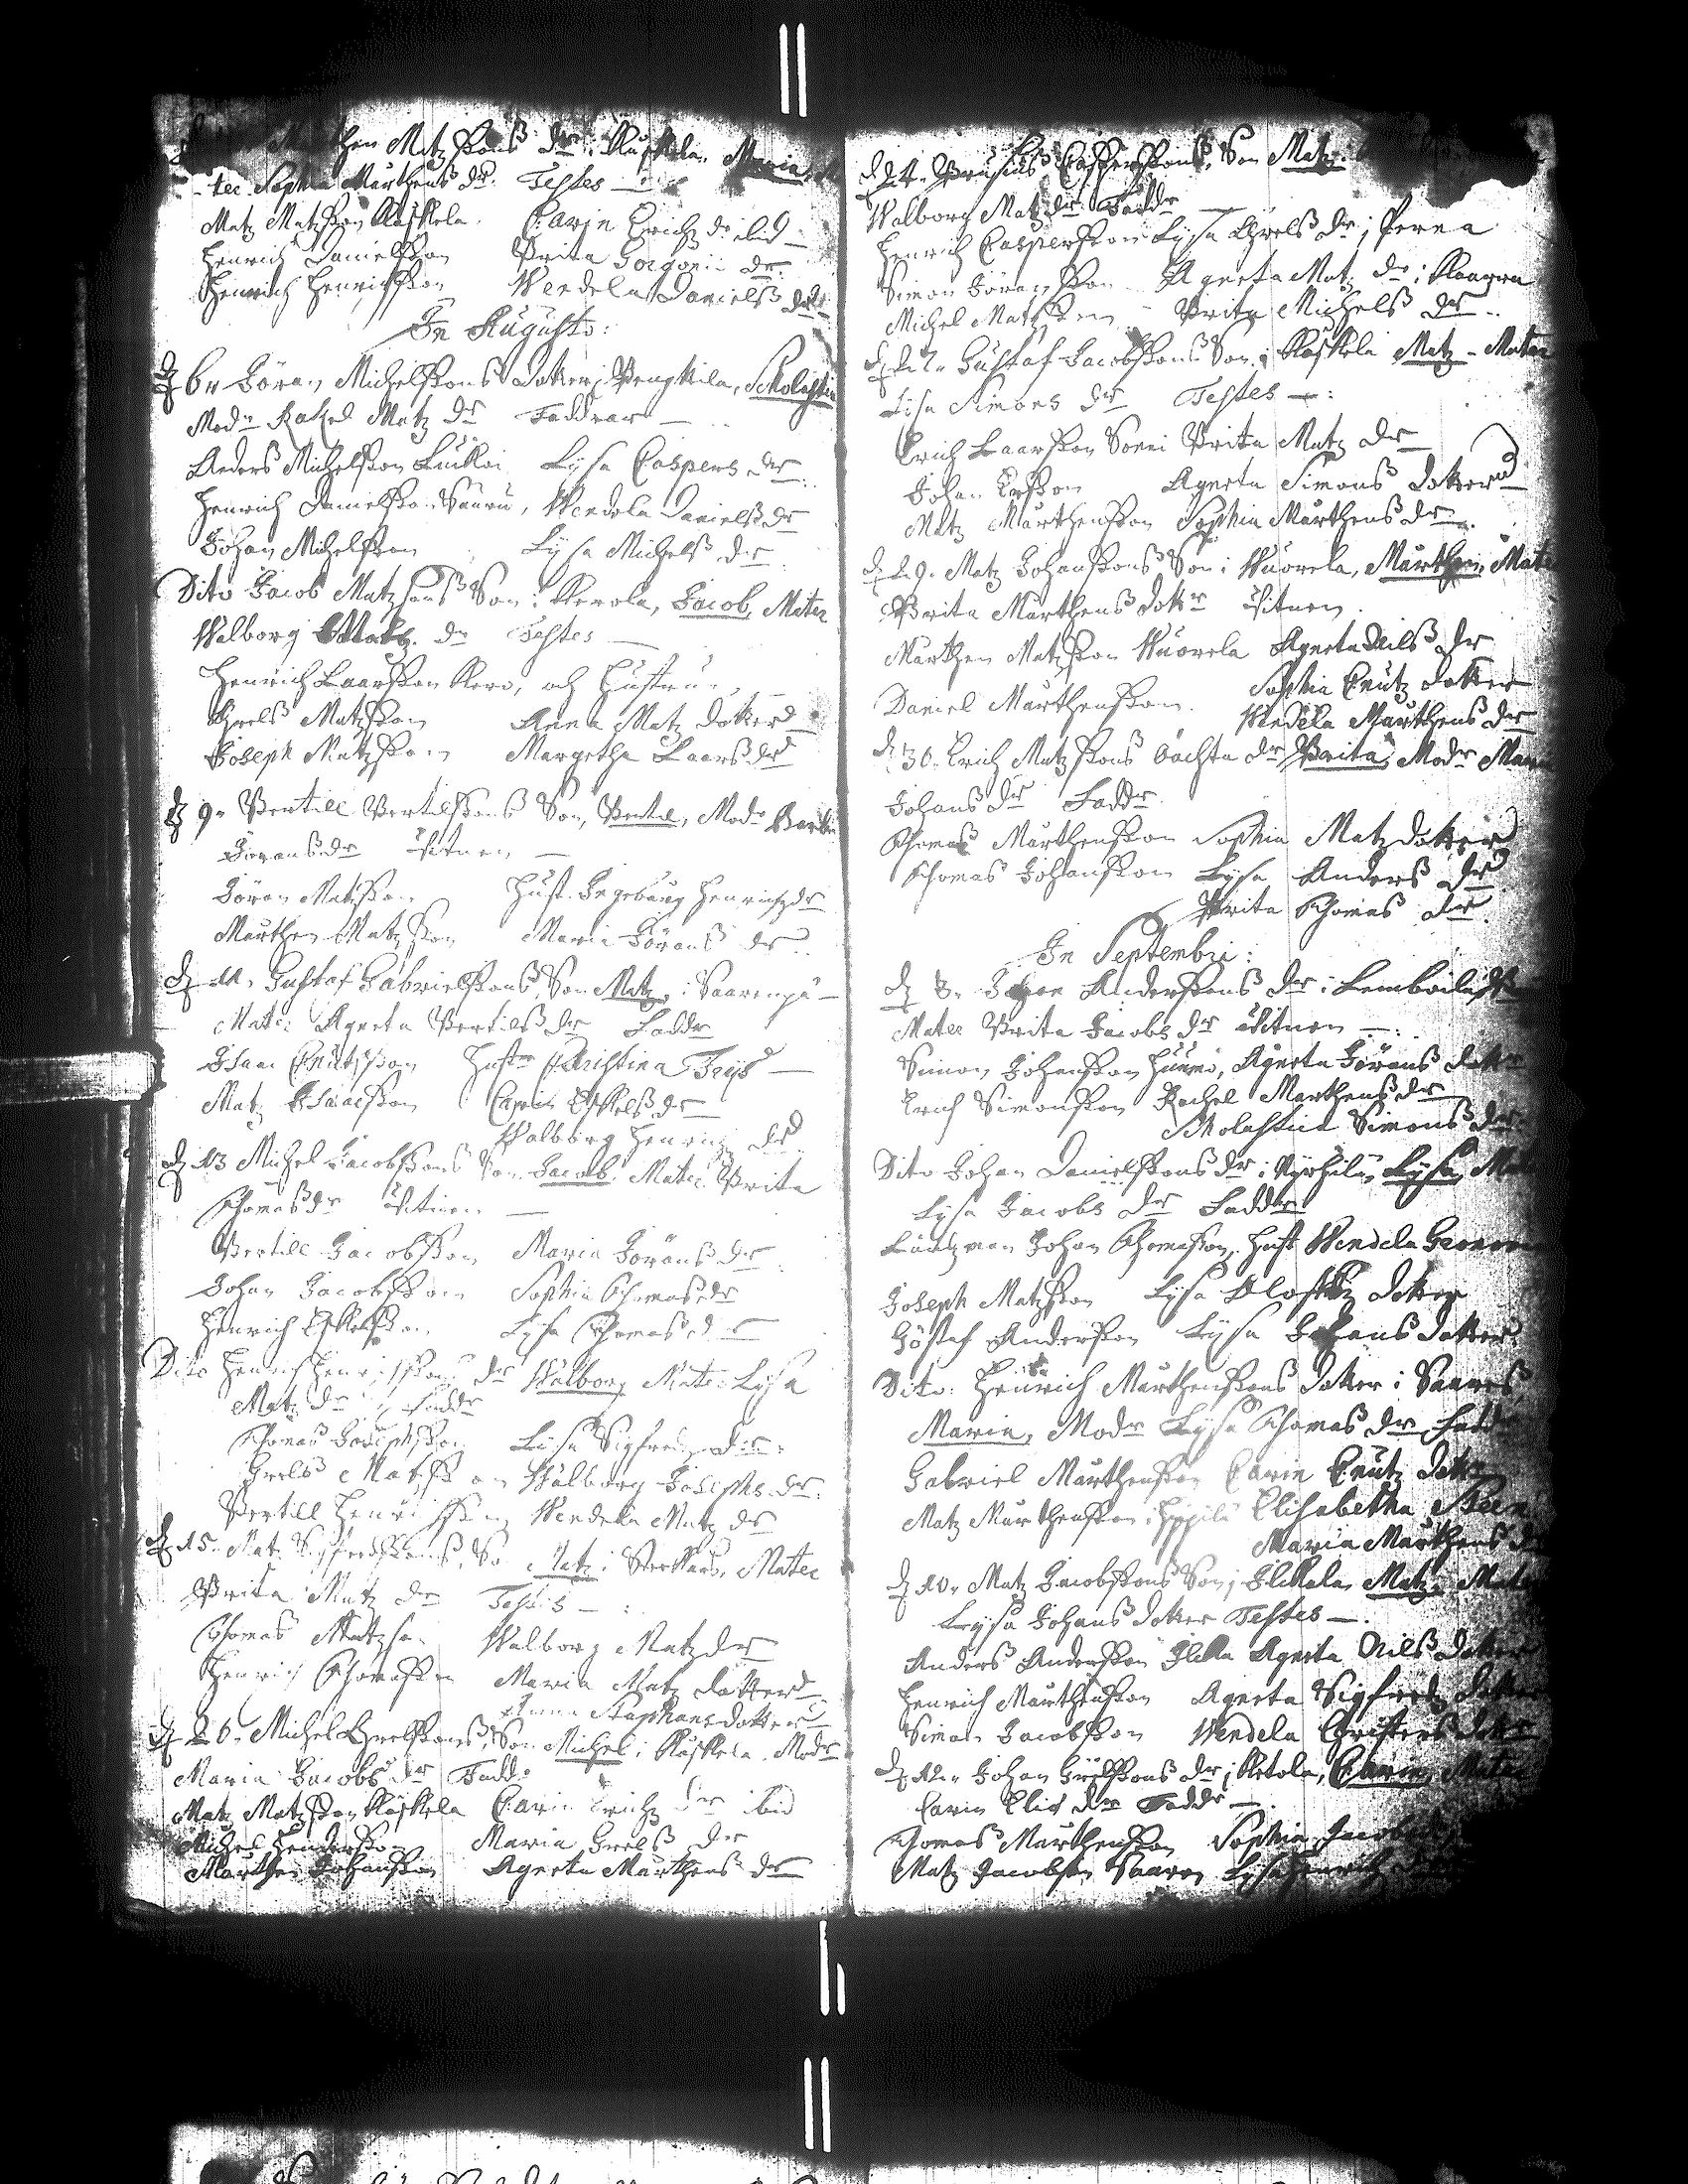 Matz ßons dr i Kuskela, Maria
ter Sophia Mårthens dr. Testes
Matz Matzßon Kåskela. Carin Erichz dr ibid
Henrich Danielßon Brita Gorgonii dr
Henrich Henrichßon Wendela Daniels dr
In Augusto:
d 6 Göran Michelßons doter i Pengkila, Scholastica
Modr Rakel Matz dr Faddrar
Anders Michelßon Luikoi Lysa Caspers dr
Henrich Danielßon Wendela Daniels dr
Johan Michelßon Lysa Michels dr
Dito Jacob Matzßons Son i Kerola, Jacob, Mater
Walborg Matz dr Testes
Henrich Laarßon Kero, och hustru
Grels Matzßon Anna Matz doter
Joseph Matzßon Margetha Laars dr
d 9 Bertill Bertilßons Son, Bertil, Modr
Görans dr Vitnen
Göran Matzßon Hust. Ingeborg Henrichz dr
Mårthen Matzßon Maria Görans dr
d 11 Gustaf Gabrielßons Son Matz, i Saarenpä
Mater Agneta Bertils dr Faddr
Isaac Cnutzßon Hustr Christina Frijs
Matz Isaacßon Carin Eskels dr
Walborg Henrichz dr
d 13 Michel Jacobßons Son Jacob, Mater Brita
Thomas dr Vitnen
Bertill Jacobßon Maria Görans dr
Johan Jacobßon Sophia Thomas dr
Henrich Eskelßon Lysa Thomas dr
Dito Henrich Henrichßons dr Walborg Mater Lysa
Matz dr Faddr
Thomas Josephßon Lysa Sigfredz dr
Grels Matzßon Walborg Josephs dr
Bertill Henrichßon Wendela Matz dr
d 15 Matz Sigfredßons Son Matz i Mater
Brita Matz dr Testes
Thomas Matzson Walborg Matz dr
Henrich Thomaßon Maria Matz dotter
Anna Staphans dotter
d 26 Michel Grelßons Son Michel i Kåskela Modr
Maria Jacobs dr Faddr
Matz Matzßon Kåskela Carin Erichz dr ibid
Michel Maria Grels dr
Mårthen Johanßon Agneta Mårthens dr
d 24 Brusius Casperßons Son Matz
Walborg Matz dr Faddr
Henrich Casperßon Lysa Grels dr i Perna
Simon Göranßon Agneta Matz dr i
Michel Matzßon Brita Michels dr
d Gustaf Jacobßons Son i Kåskela Matz Mater
Lisa Simons dr Testes
Erich Laarßon Sonni Brita Matz dr
Johan Erßon Agneta Simons doter
Matz Mårthenßon Sophia Mårthens dr
d 29 Matz Johanßons Son i Wuorela, Mårthen, Mate
Brita Mårthens dotr Vitnen
Mårthen Matzßon Wuorela Agneta Nils dr
Daniel Mårthenßon Sophia Cnutz doter
Wendela Mårthens dr
d 30 Erich Matzßons ächta dr Brita, Modr Maria
Johans dr Faddr
Thomas Mårthenßon Sophia Matz doter
Thomas Johanßon Lysa Anders dr
Brita Thomas dr
In Septembri:
d 3 Johan Anderßons dr i
Mater Brita Jacobs dr Vitnen
Simon Johanßon Agneta Görans doter
Erich Simonßon Rachel Marthens dr
Scholastica Simons dr
Dito Johan Danielßons dr i Lysa, Mate
Lysa Jacobs dr Faddr
Länsman Johan Thomaßon, Hust Wendela
Joseph Matzßon Lysa doter
Göstaf Anderßon Lysa Johans doter
Dito: Henrich Mårthenßons doter i Saares
Maria, Modr Lysa Thomas dr Faddr
Gabriel Mårthenßon Carin Cnutz dotr
Matz Mårthenßon Elisabetha
Maria Mårthens dr
d 10 Matz Jacobßons Son i Ilckala Matz Mater
Lysa Johans doter Testes
Anders Anderßon Agneta Nils doter
Henrich Mårthenßon Agneta Sigfredz doter
Simon Jacobßon Wendela Christers doter
d Johan Grelßons dr i Ketola, Carin, Mater
Carin dr Faddr
Thomas Mårthenßon Sophia Jacobs
Matz Jacobßon Saaren Lysa Henrichz